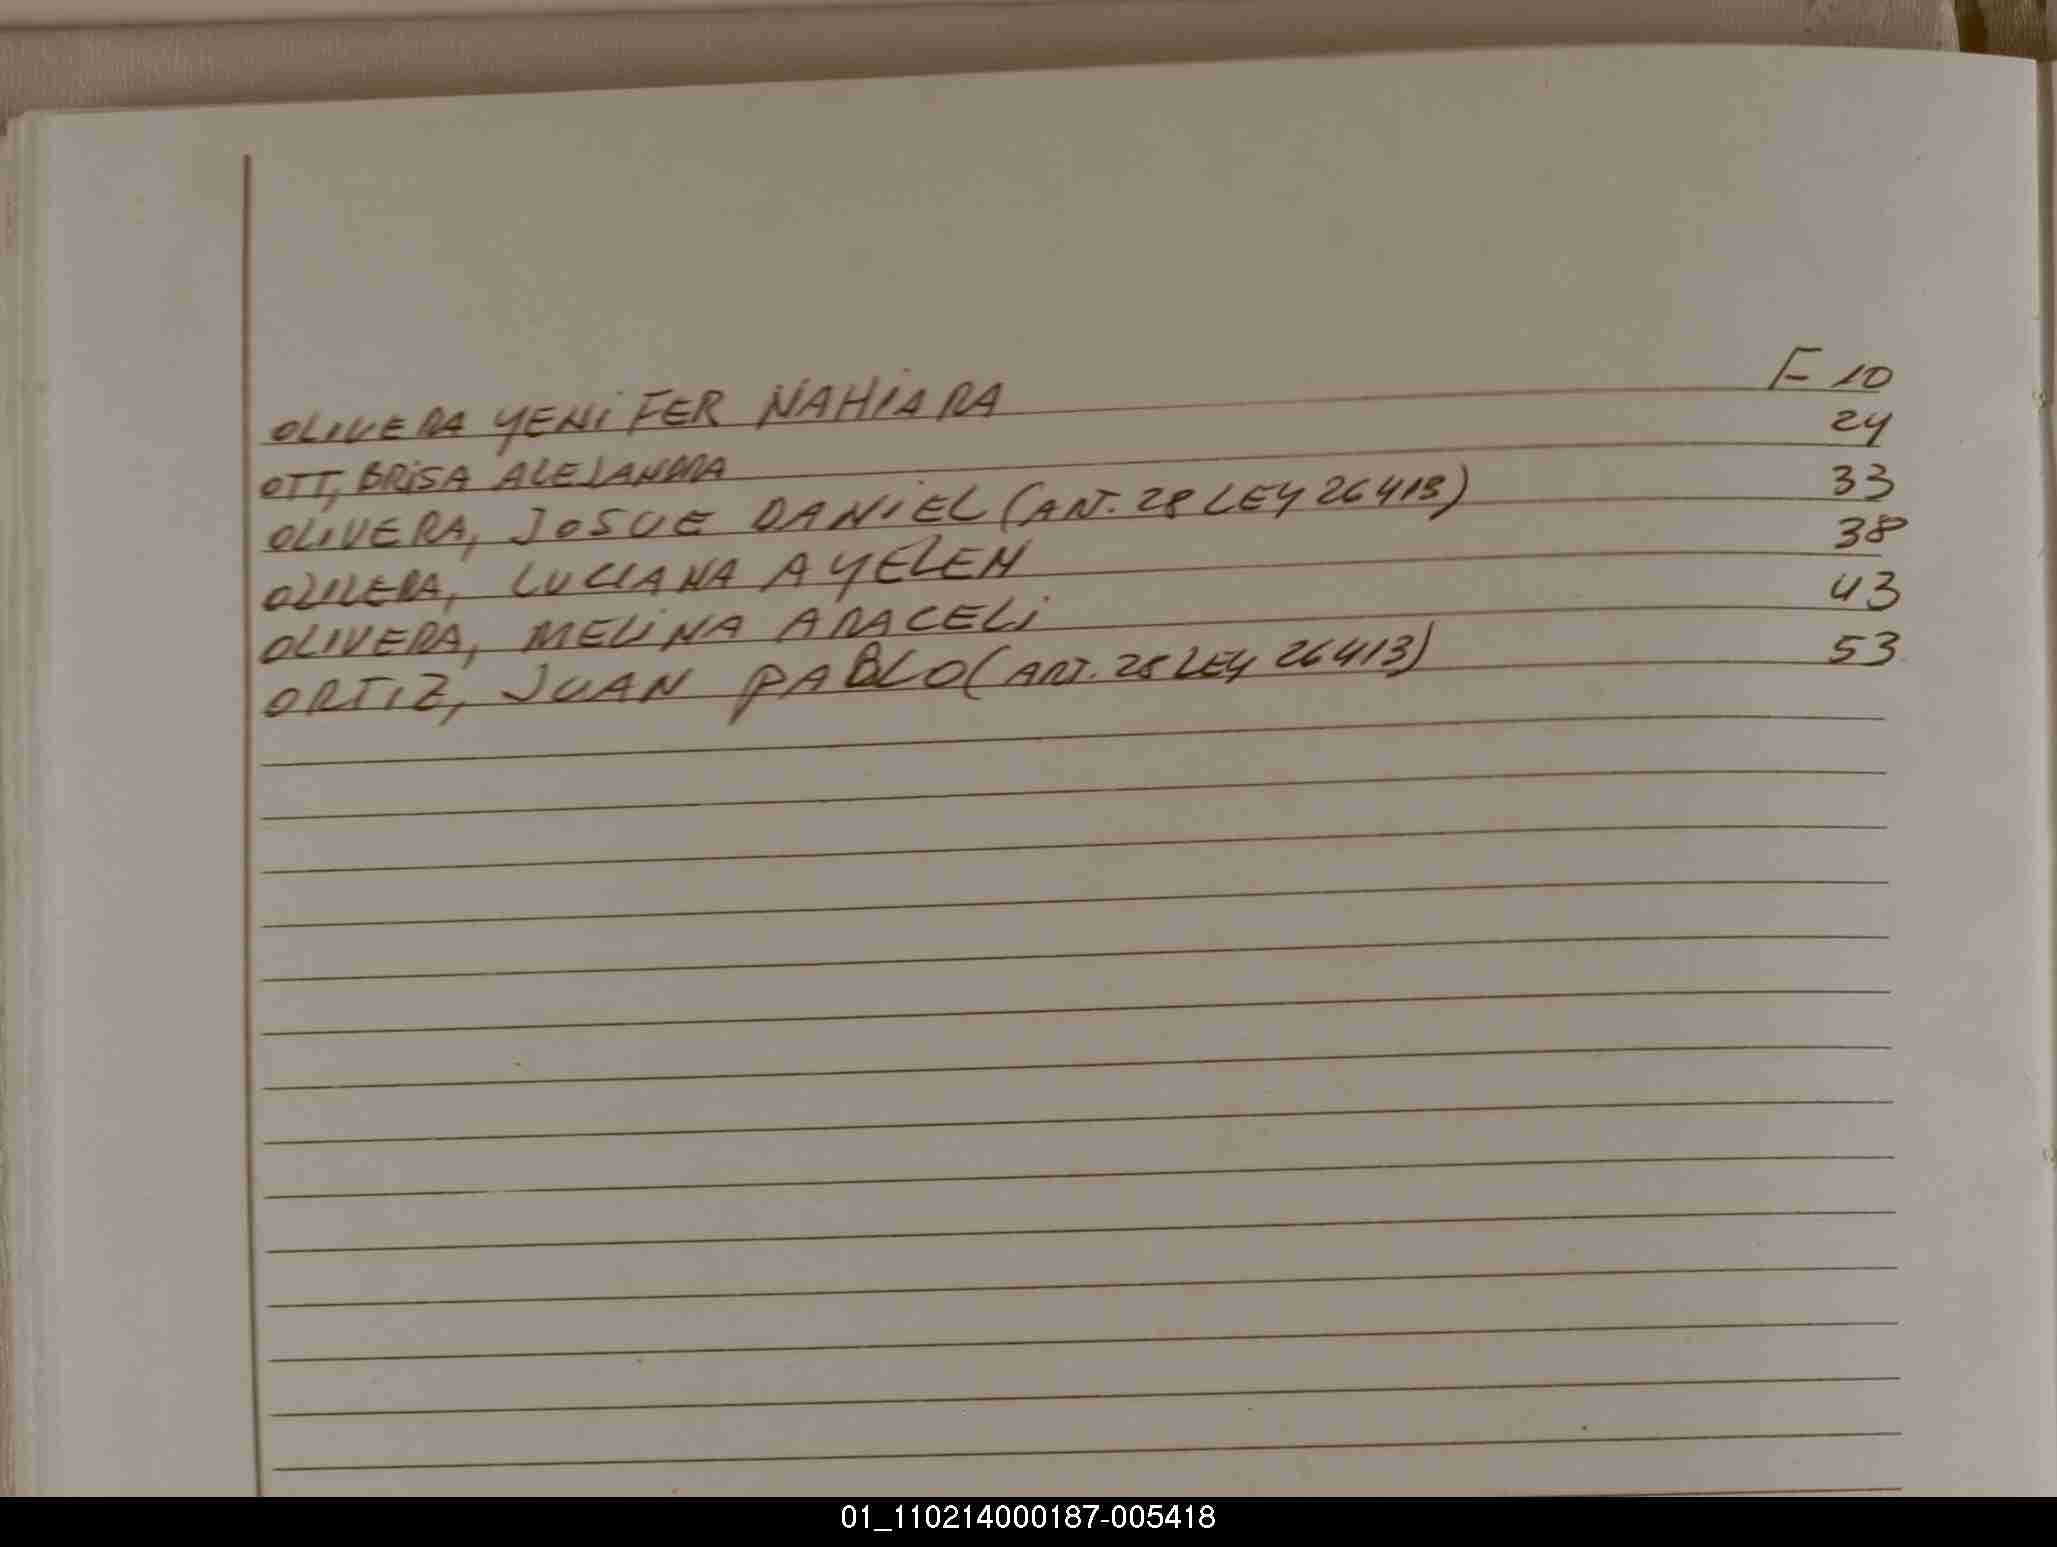 OLIVERA YENIFER NAHIARA F 10
OTT, BRISA ALEJANDRA 24
OLIVERA, JOSUE DANIEL (ART. 28 LEY 26413) 33
OLIVERA, LUCIANA AYELEN 38
OLIVERA, MELINA ARACELI 43
ORTIZ, JUAN PABLO (ART. 28 LEY 26413) 53
01_110214000187-005418